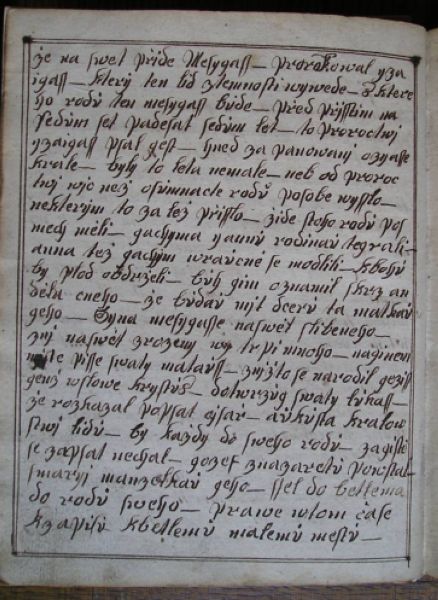 že na swet přide Mesygass — prorokowal yza
igass — ktery ten lid ztemnosti wywede — z ktere
ho rodu ten mesygass bude — před přisstim na
Sedum set padesat sedum let — to proroctwj
yzaigass psal gest — hned za panowanj ozyasse
krale — byly to leta nemale — neb od proroc
twj wjc než osumnacte rodu posobe wysslo —
nekterym to za lež přisslo — žide stoho rodu pos
mech měli — gachyma yanny rodinau tegrali —
anna tež gachym wraucně se modlili kbohu
by plod obdrželi — buh gim oznamil skrz an
děla sneho — že budau mjt dceru ta matkau
geho — Syna mesygasse naswět slibeneho —
znj naswět zrozeny wy trpi mnoho — naginem
mjste pisse swaty matauss — znjžto se narodil gežiss
genž wslowe krystus — dotwrzug swaty lukass —
že rozkazal popsat cjsar — aukusta kralow
stwj lidu — by každy do sweho rodu — zagisti
se zapsat nechal — gozef znazaretu powstal —
smaryj manzelkau geho — ssel do betlema
do rodu sweho — prawe wtom čase
kzapisu kbetlemu malemu mestu —